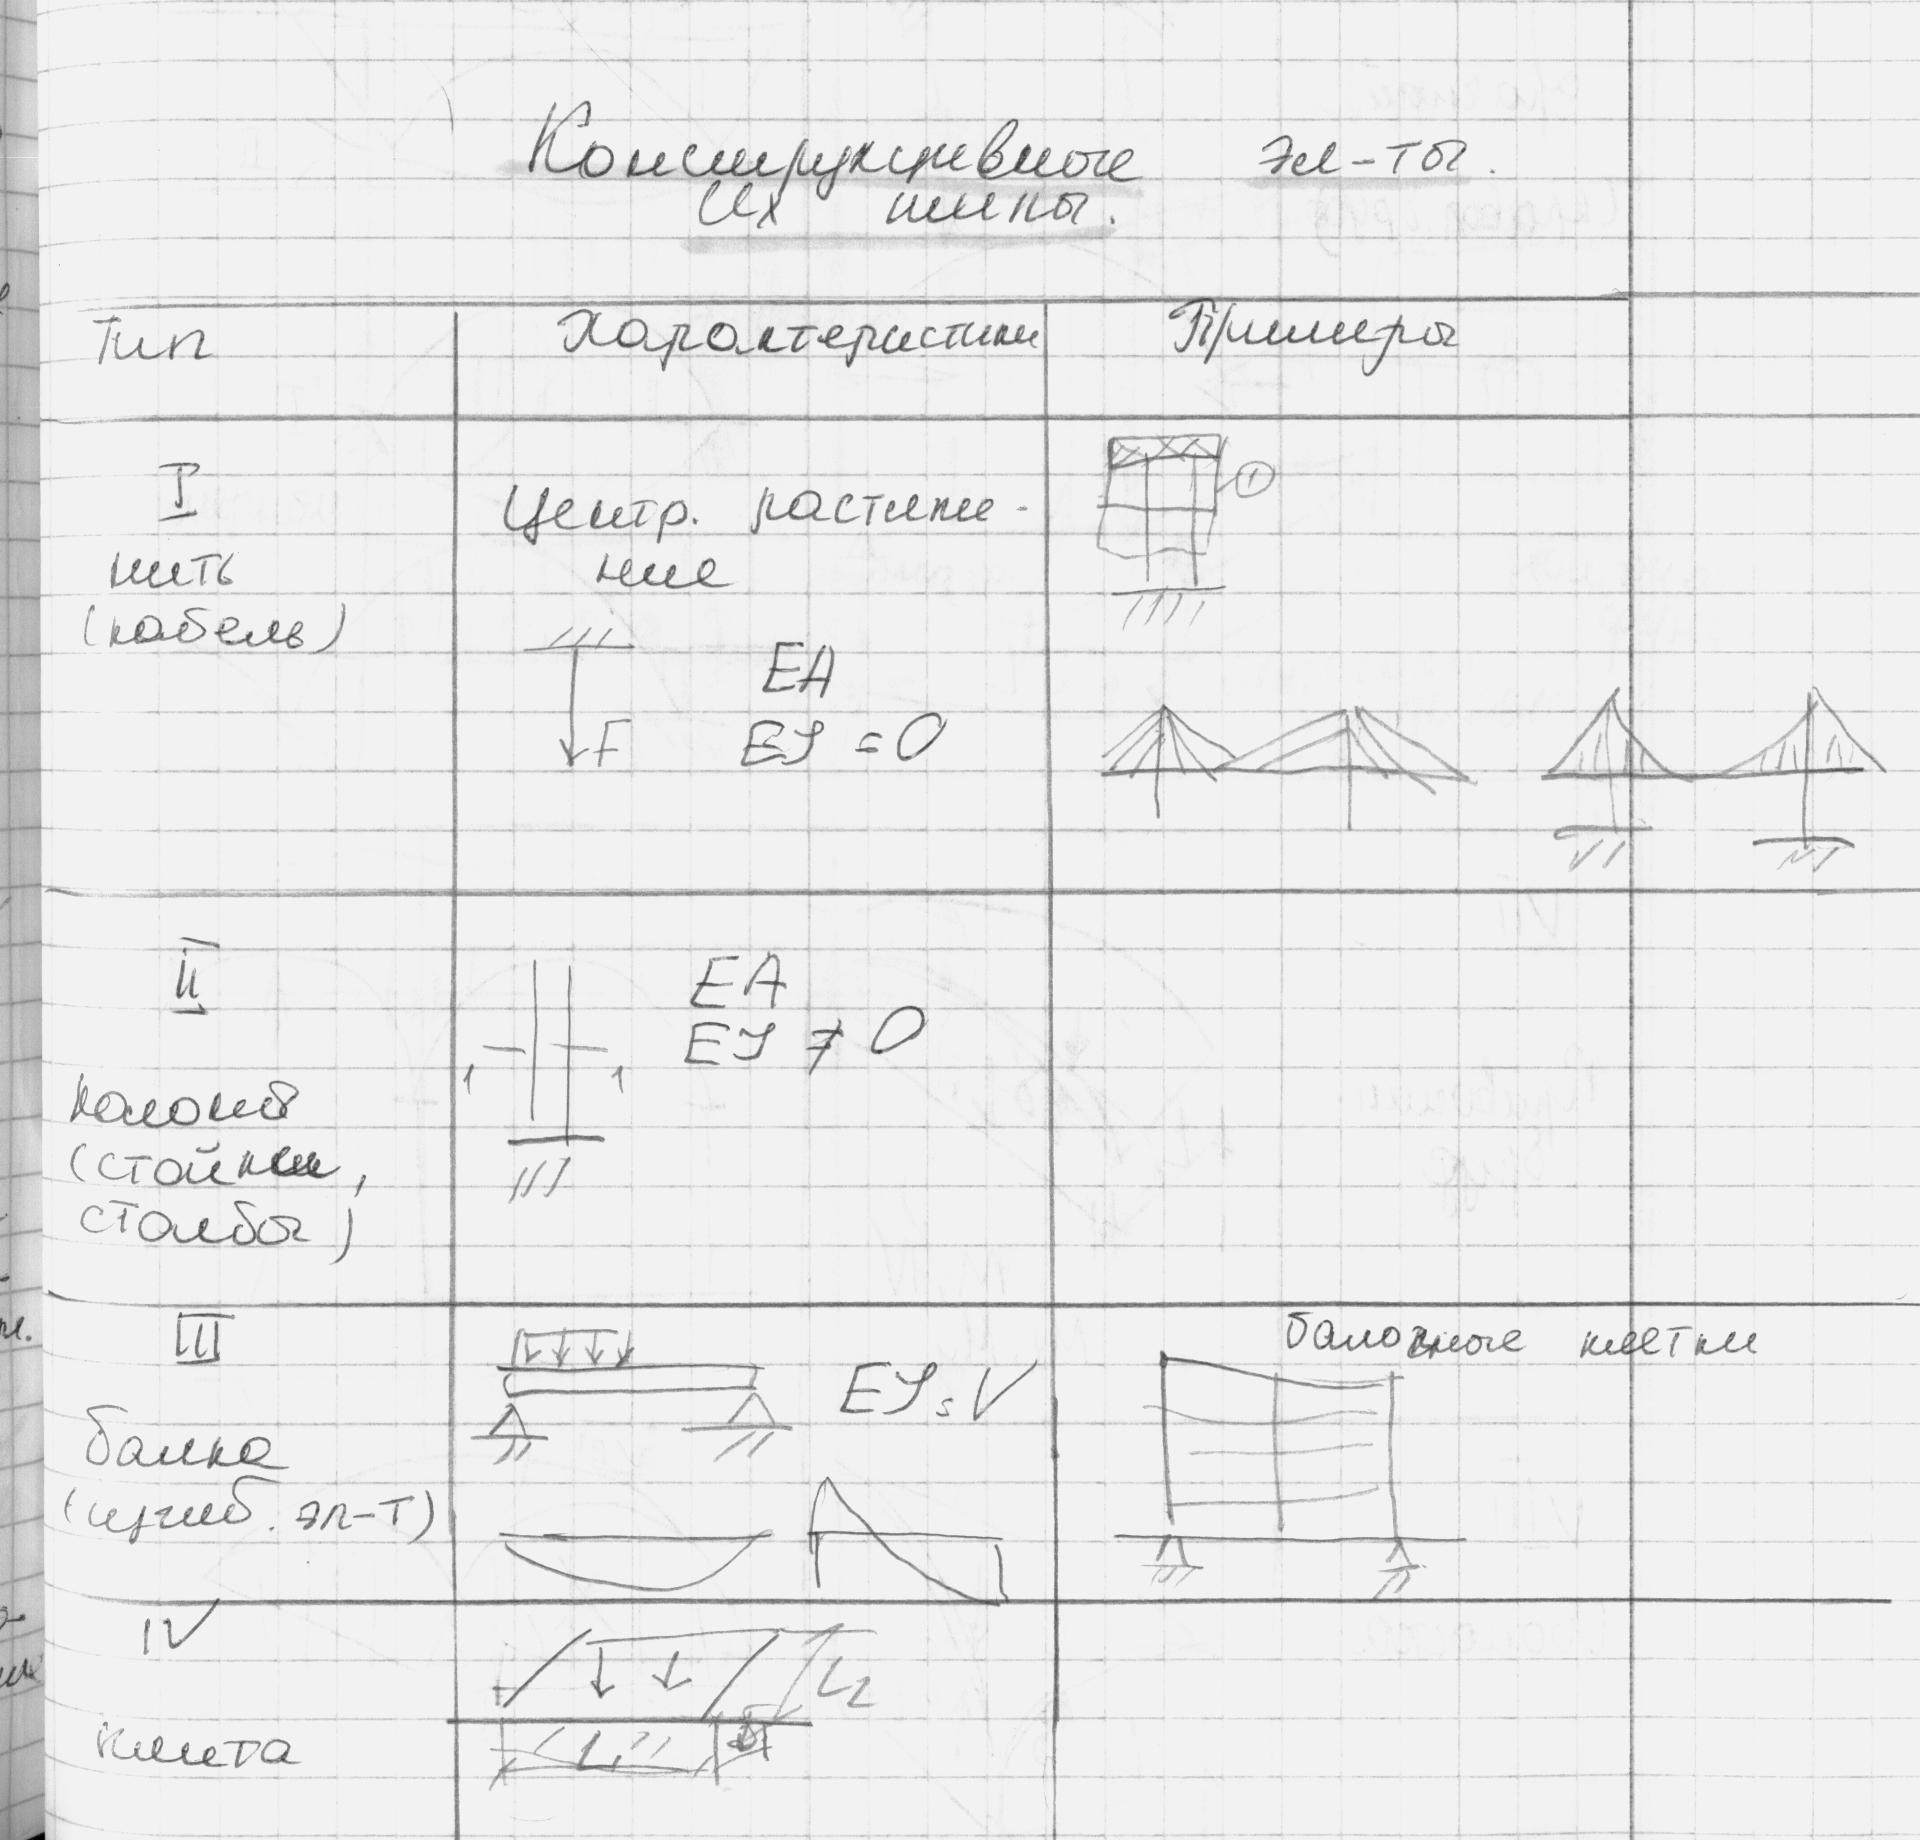 Конструктивные эл-ты.
Их типы.
Тип Характеристики Примеры
I
нить
(кабель)
Центр. растяже-
ние
EA
EJ = 0
F
1
II
колонны
(стойки,
столбы)
EA
EJ ≠ 0
1 1
III
балка
(изгиб. эл-т)
EJ = V
балочные клетки
IV
плита
L2
L1